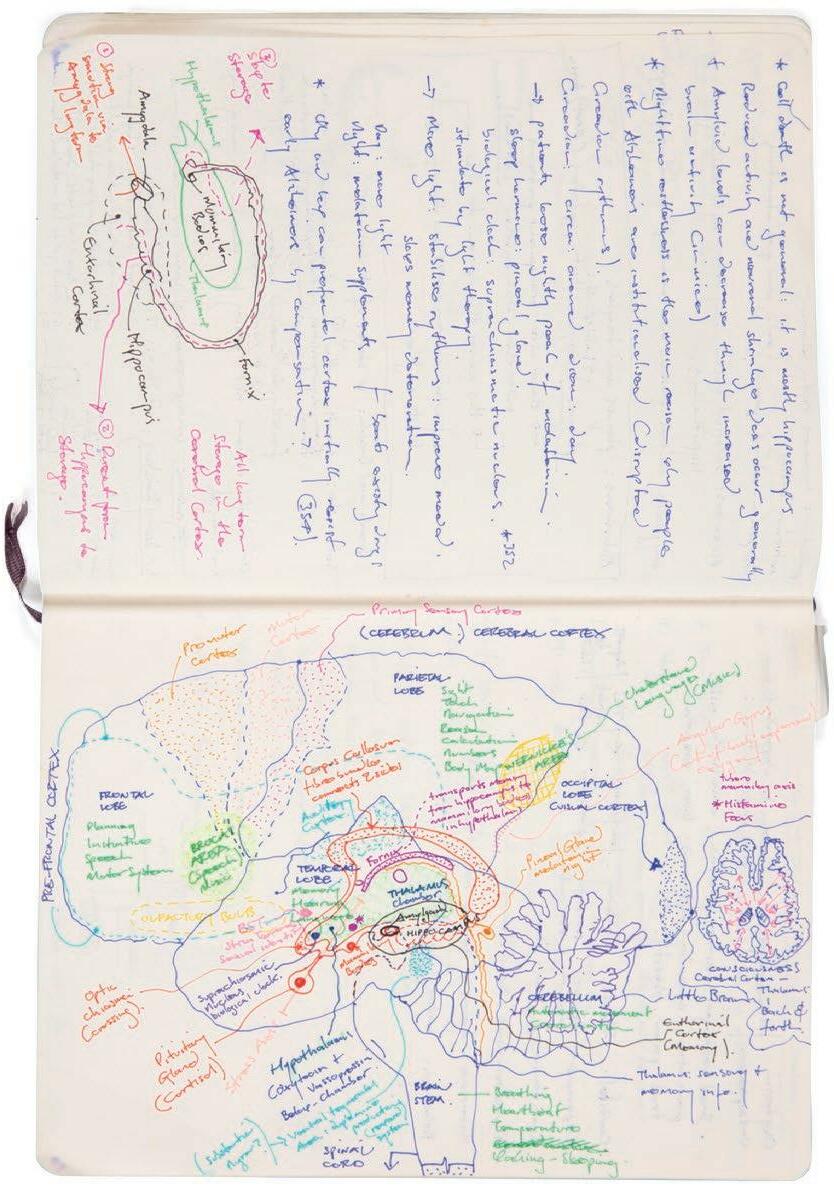 * Cell death is not general: it is mostly hippocampus
Reduced activity and neuronal shrinkage does occur generally
+ Amyloid levels can decrease through increased
brain activity (mimics)
* Nighttime restlessness is the main reason why people
with Alzheimers are institutionalised (disrupted
Circadian rythms).
Circadian: circa: around diem: day.
→ patients loose nightly peak of melatonin.
sleep hormone: pineal gland
biological clock: suprachiasmatic nucleus. *352
stimulate by light therapy.
→ More light: stabilise rythms: improve mood.
slows memory deterioration.
Day: more light
Night: melatonin supplements
* Why and how can prefrontal cortex initially resist
early Alzheimers by compensation → ? (354).
③ Ship to
Storage
Hypothalamus
Mammillary
Bodies
Thalamus
Fornix
Amygdala
① Strong
emotion via
Amygdala to
long term
Entorhinal
Cortex
Hippocampus
All long term
Storage in the
Cerebral Cortex.
Hippocampus to
Storage.
Primary Sensory Cortex
(CEREBRUM:) CEREBRAL CORTEX
Premotor
Cortex
Motor
Cortex
PARIETAL
LOBE
Sight
Touch
Navigation
Reason
Calculation
Numbers
Understand
Language
(Music)
WERNICKE'S
AREA
Angular Gyrus
Corpus Callosum
fibre bundle
connects 2 sides
Auditory
Cortex
transports memory
from hippocampus to
mammillary bodies
in hypothalamus
OCCIPITAL
LOBE
(VISUAL CORTEX)
tubero
mammilary axis
* Histamine
Focus
PRE-FRONTAL CORTEX
FRONTAL
LOBE
Planning
Initiative
Speech
Motor System
BROCA'S
AREA
(Speech
OLFACTORY BULB
TEMPORAL
LOBE
Memory
Hearing
Language
Fornix
THALAMUS
chamber
Amygdala
HIPPOCAMPUS
Pineal Gland
melatonin
night
Suprachiasmic
nucleus
biological clock.
Optic
chiasm
(crossing)
Pituitary
Gland
(Cortisol)
Stress Axis
Hypothalamus
Oxytocin +
Vasopressin
Below-Chamber
(Substantia
Nigra?) → ventral tegmental
area: dopamine
CEREBELLUM
automatic movement
Coordination
Little Brain
CONSCIOUSNESS
Cerebral Cortex -
Thalamus
Back &
forth
Enthorinal
Cortex
(Memory).
Thalamus: sensory +
memory info.
BRAIN
STEM
Breathing
Heartbeat
Temperature
Waking - Sleeping.
SPINAL
CORD